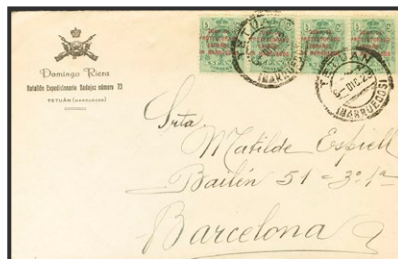 Domingo Riera
Batallón Expedicionario Badajoz número 73
TETUÁN (MARRUECOS)
TETUAN
(MARRUECOS)
TETUAN
DIC. 25
(MARRUECOS)
Srta.
Matilde Espiell
Bailén 51 = 3º 1ª
Barcelona